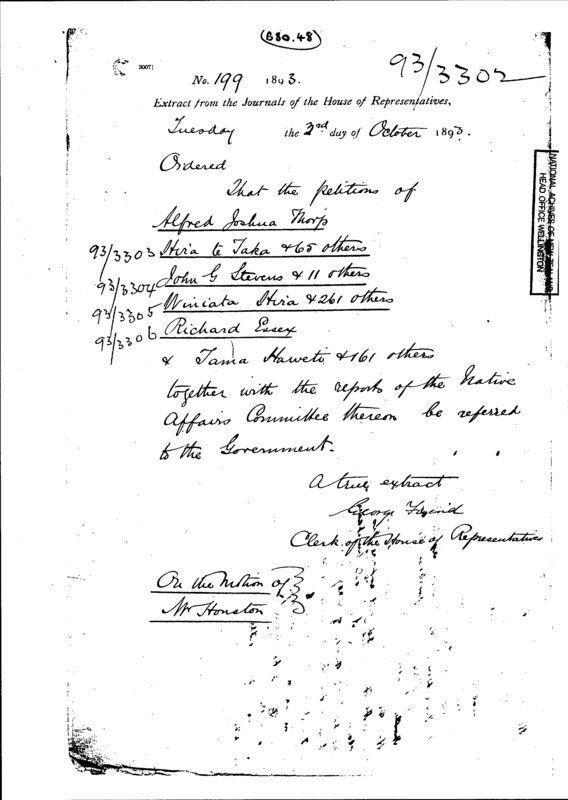 (B80.48)
93/3302
3007]
No. 199 1893.
Extract from the Journals of the House of Representatives,
Tuesday the 3rd day of October 1893.
Ordered
That the petitions of
Alfred Joshua Thorp
93/3303 Hira te Taka & 65 others
93/3304 John G Stevens & 11 others
93/3305 Winiata Hira & 261 others
93/3306 Richard Essex
& Tama Haweti & 161 others
together with the reports of the Native
Affairs Committee thereon be referred
to the Government.
A true extract
George Friend
Clerk of the House of Representatives
On the Motion of
Mr Houston
NATIONAL ARCHIVES OF NEW ZEALAND
HEAD OFFICE WELLINGTON